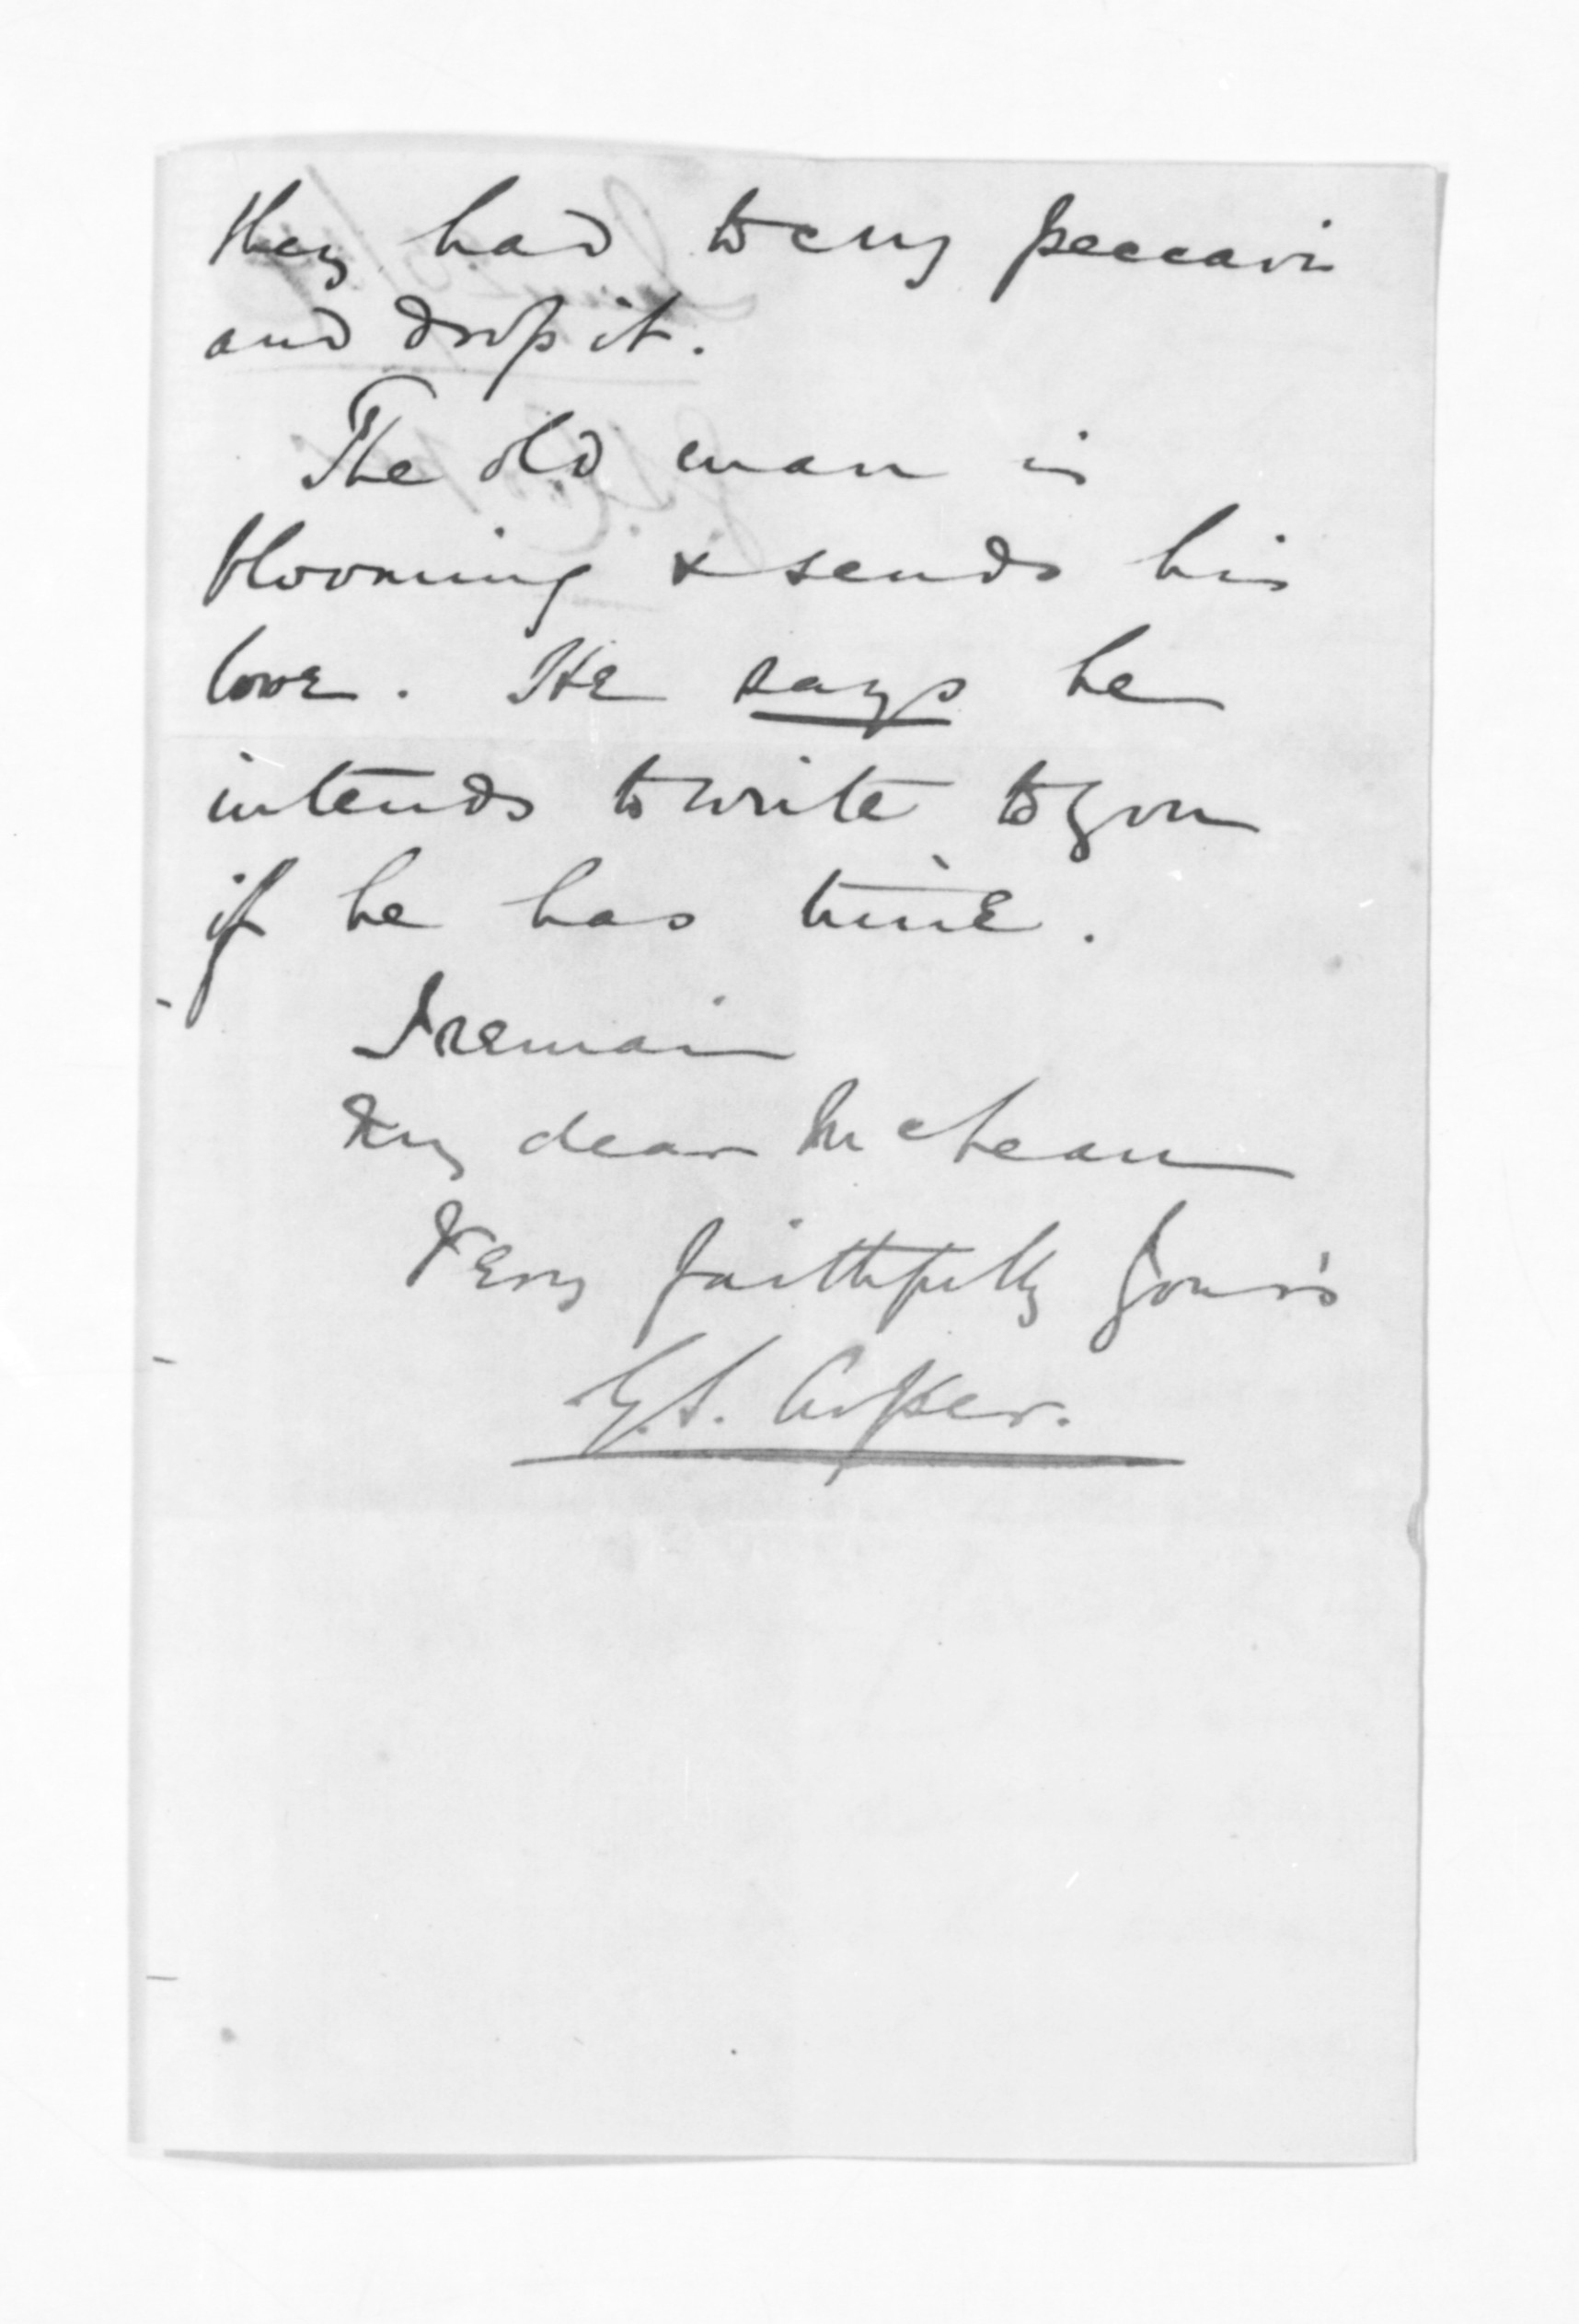 they had to cry peccavi
and drop it.
The old man is
blooming & sends his
love. He says he
intends to write to you
if he has time.
I remain
My dear McLean
Very faithfully Yours
G.S. Cooper.